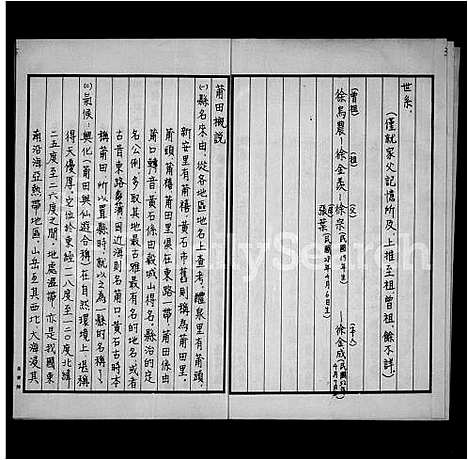 世系：
(僅就家父記憶所及，上推至祖、曾祖，餘不詳)
(曾祖) (祖) (父) (本人)
徐烏農—徐金羨—徐宗(民國19年生)—徐金成(民國52年
張葉(民國23年4月6日生)
莆田概說
㈠縣名來由：從各區地名上查考，醴泉里有莆頭，
新安里有莆禧，黃石市舊則稱為莆田里，
莆頭莆禧莆田里俱在東路一帶，莆田係由
莆口轉音，黃石係由穀城山得名，縣治的定
名公例，多取其地最古雅最有名的地名或者
古昔東路因近海則名莆口，黃石古時本
稱莆田，所以置縣時，就以之為一縣的名稱了。
㈡氣候：興化(莆田與仙遊合稱)在自然環境上，堪稱
得天優厚，它位於東經一一八度至一二〇度，北緯
二五度至二六度之間，地處溫帶，亦是我國東
南沿海亞熱帶地區，山岳亙其西北，大海浸其